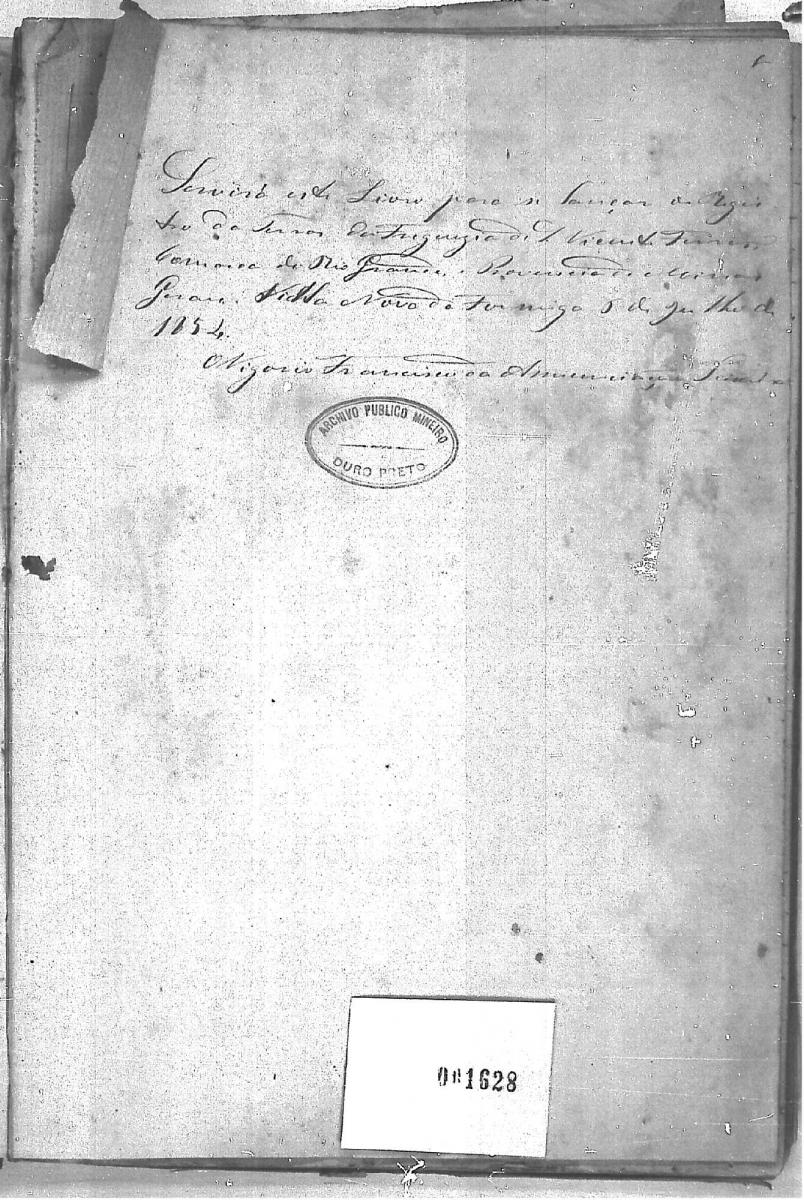 Servirá este Livro para se lançar o Regis
tro da Terras da Freguezia de S. Vicente Ferrer
Comarca do Rio Grande Provincia de Minas
Geraes. Villa Nova da Formiga 5 de Julho de
1854.
O Vigario Francisco da Annunciação
ARCHIVO PUBLICO MINEIRO
OURO PRETO
001628